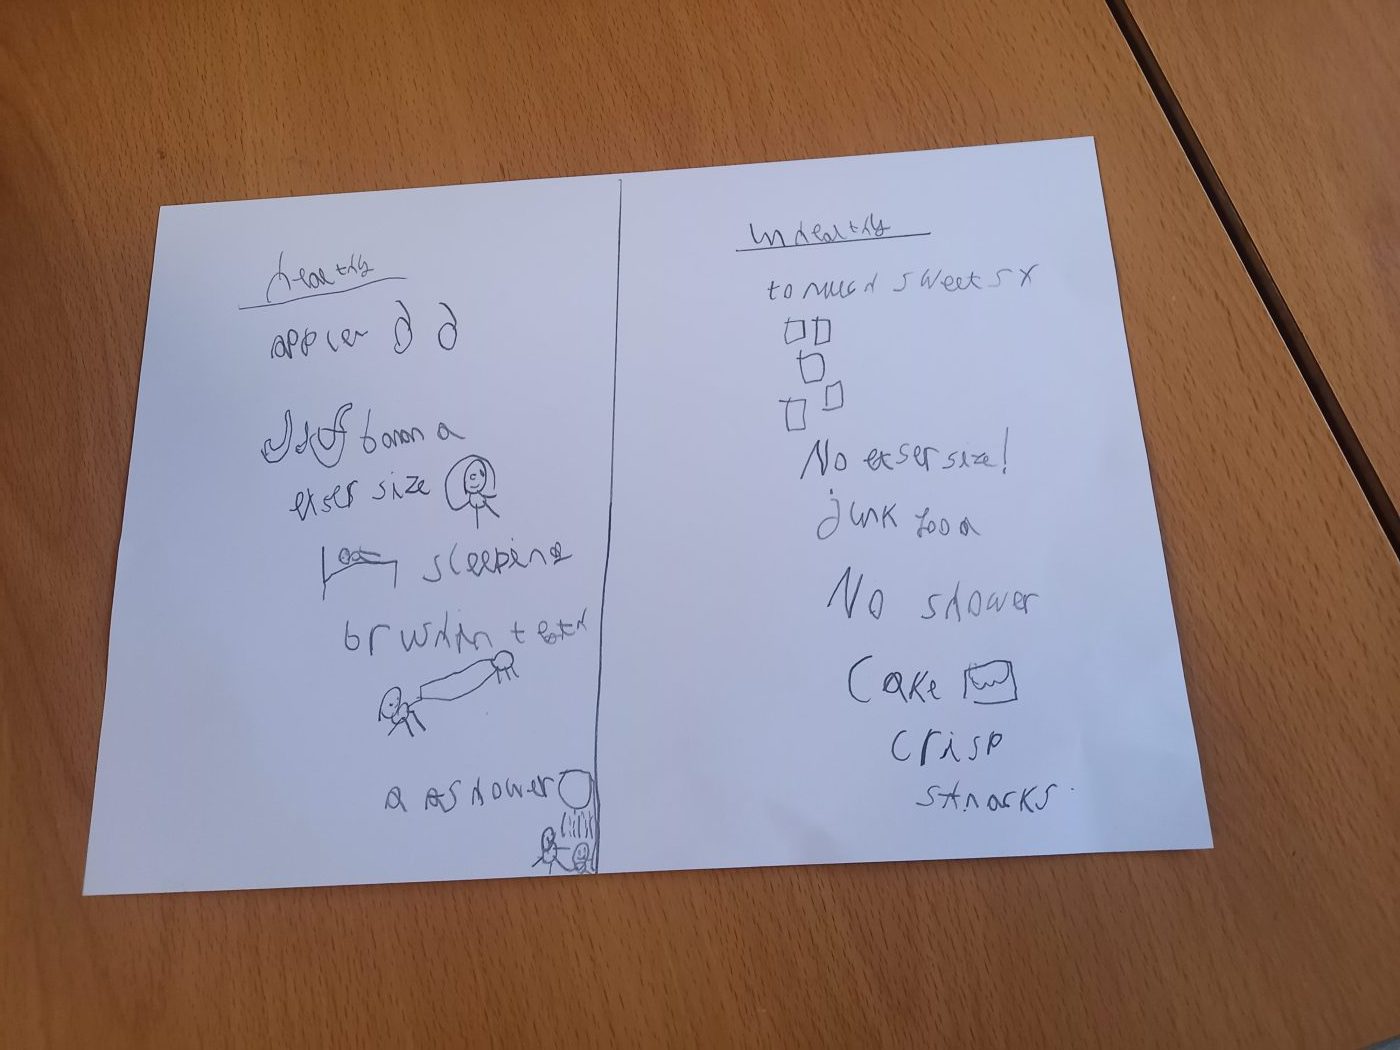 healthy
apples
banana
exser size
sleeping
brushin teeth
a shower
unhealthy
to much sweets x
No exser size!
junk food
No shower
Cake
crisp
snacks